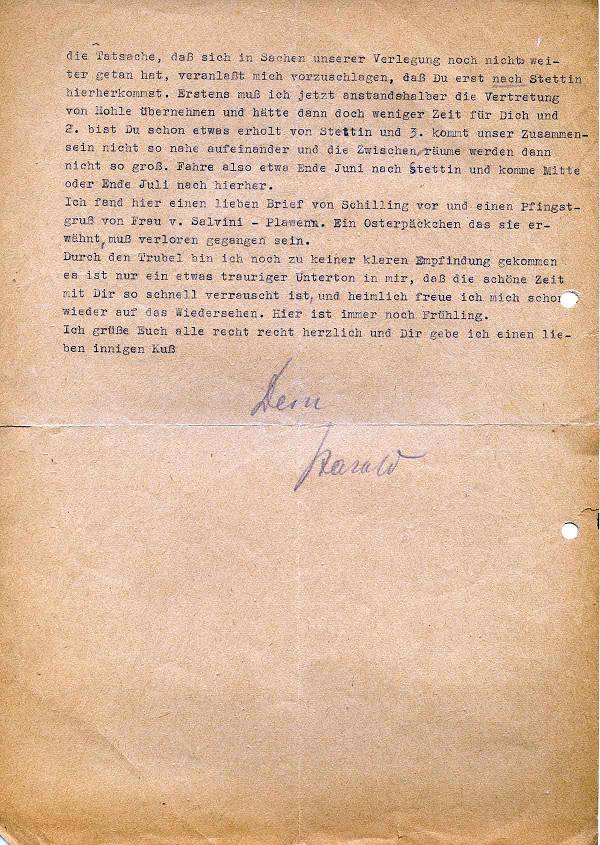 die Tatsache, daß sich in Sachen unserer Verlegung noch nichts wei-
ter getan hat, veranlaßt mich vorzuschlagen, daß Du erst nach Stettin
hierherkommst. Erstens muß ich jetzt anstandshalber die Vertretung
von Hohle übernehmen und hätte dann doch weniger Zeit für Dich und
2. bist Du schon etwas erholt von Stettin und 3. kommt unser Zusammen-
sein nicht so nahe aufeinander und die Zwischenräume werden dann
nicht so groß. Fahre also etwa Ende Juni nach Stettin und komme Mitte
oder Ende Juli nach hierher.
Ich fand hier einen lieben Brief von Schilling vor und einen Pfingst-
gruß von Frau v. Salvini - Plawenn. Ein Osterpäckchen das sie er-
wähnt, muß verloren gegangen sein.
Durch den Trubel bin ich noch zu keiner klaren Empfindung gekommen
es ist nur ein etwas trauriger Unterton in mir, daß die schöne Zeit
mit Dir so schnell verrauscht ist, und heimlich freue ich mich schon
wieder auf das Wiedersehen. Hier ist immer noch Frühling.
Ich grüße Euch alle recht recht herzlich und Dir gebe ich einen lie-
ben innigen Kuß
Dein
Harald